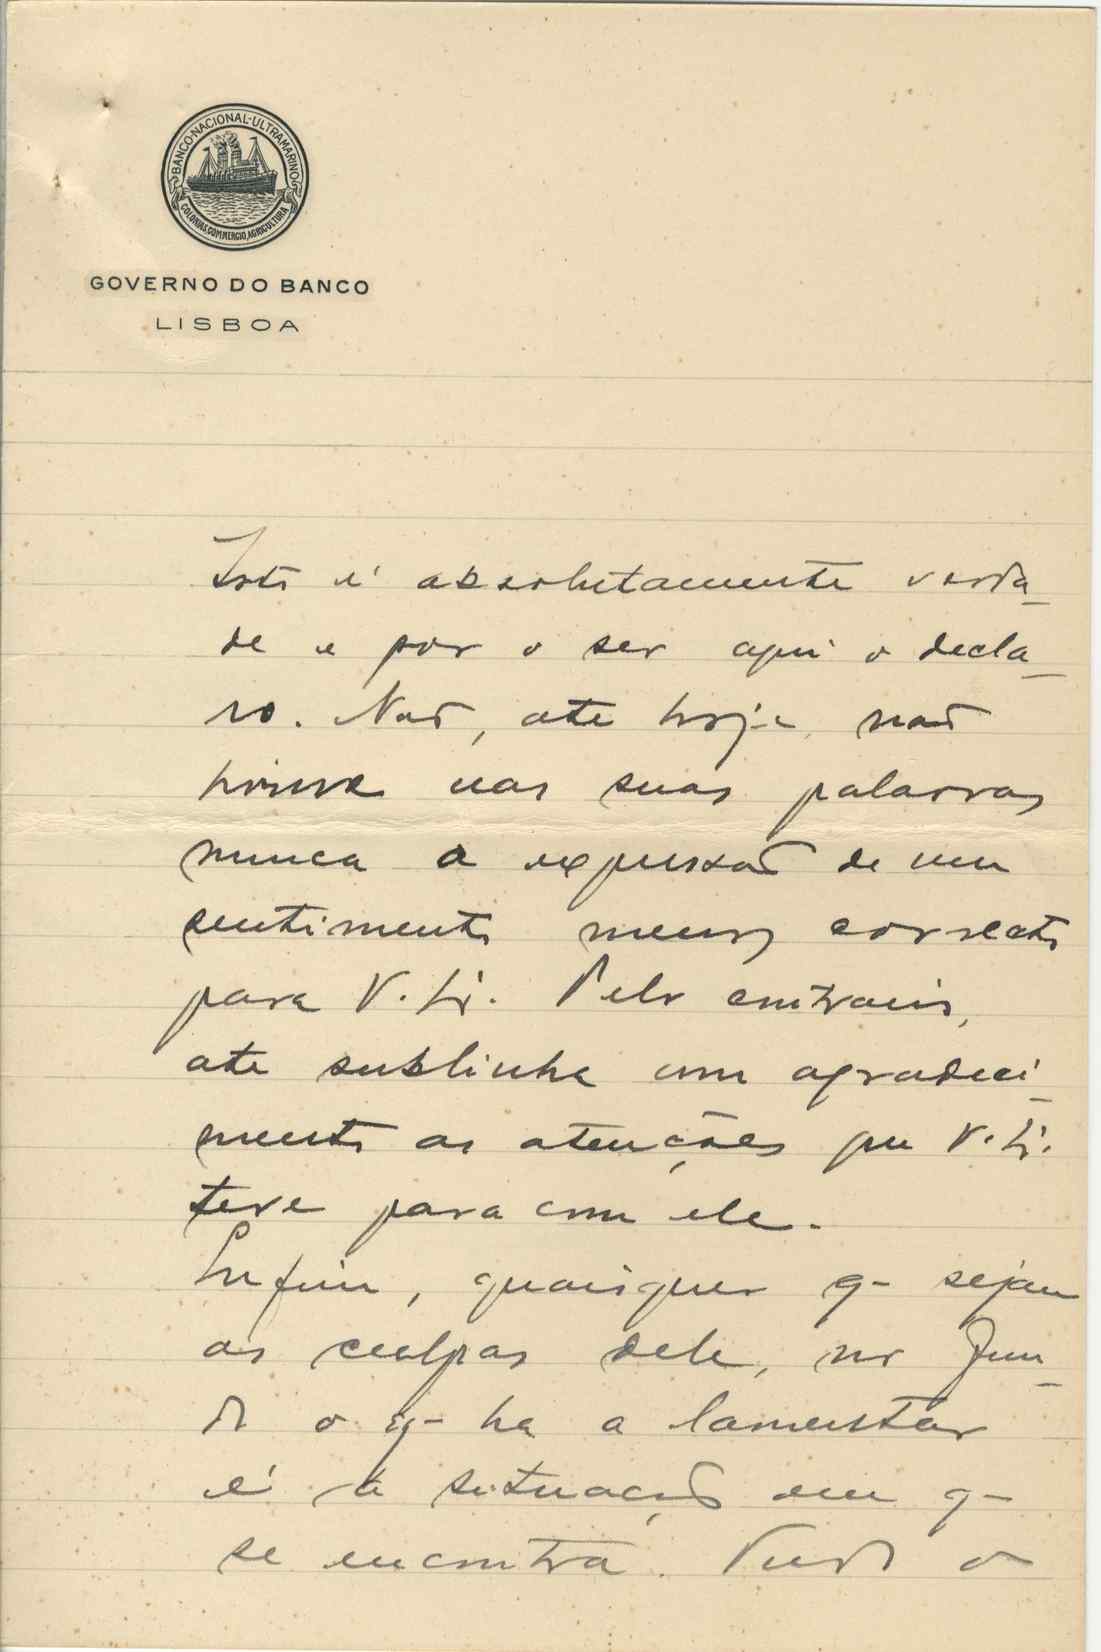 BANCO·NACIONAL·ULTRAMARINO
COLONIAS, COMMERCIO, AGRICULTURA
GOVERNO DO BANCO
LISBOA
Isto é absolutamente verda-
de e por o ser aqui o decla-
ro. Não, ate hoje, não
houve nas suas palavras
nunca a expressão de um
sentimento menos correcto
para V. Ex. Pelo contrario,
ate sublinha com agradeci-
mento as atenções que V. Ex.
teve para com ele.
Enfim, quaisquer q- sejam
as culpas dele, no fun-
do o q- ha a lamentar
é a situação em q-
se encontra. Pedi o